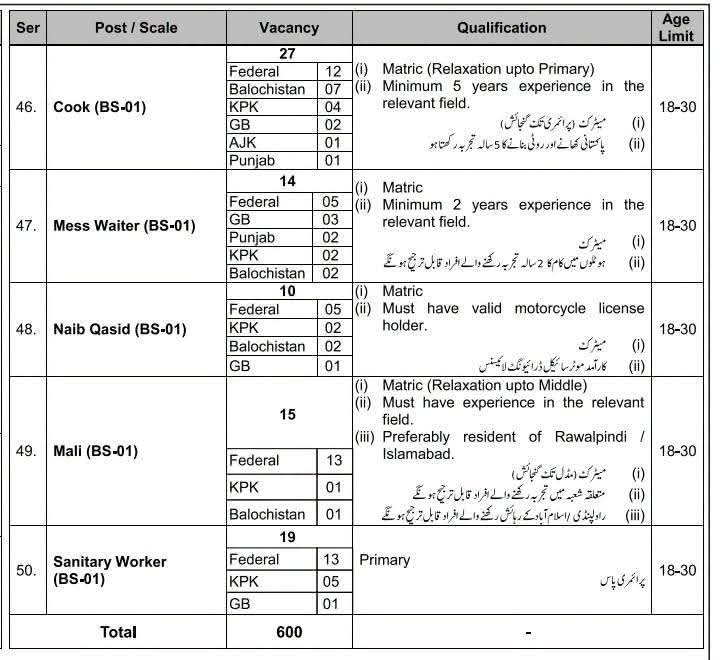 Ser Post / Scale Vacancy Qualification Age Limit
46. Cook (BS-01)
27
Federal 12
Balochistan 07
KPK 04
GB 02
AJK 01
Punjab 01
(i) Matric (Relaxation upto Primary)
(ii) Minimum 5 years experience in the
relevant field.
(i) میٹرک (پرائمری تک گنجائش)
(ii) پاکستانی کھانے اور روٹی بنانے کا 5 سالہ تجربہ رکھتا ہو
18-30
47. Mess Waiter (BS-01)
14
Federal 05
GB 03
Punjab 02
KPK 02
Balochistan 02
(i) Matric
(ii) Minimum 2 years experience in the
relevant field.
(i) میٹرک
(ii) ہوٹلوں میں کام کا 2 سالہ تجربہ رکھنے والے افراد قابل ترجیح ہونگے
18-30
48. Naib Qasid (BS-01)
10
Federal 05
KPK 02
Balochistan 02
GB 01
(i) Matric
(ii) Must have valid motorcycle license
holder.
(i) میٹرک
(ii) کارآمد موٹر سائیکل ڈرائیونگ لائیسنس
18-30
49. Mali (BS-01)
15
Federal 13
KPK 01
Balochistan 01
(i) Matric (Relaxation upto Middle)
(ii) Must have experience in the relevant
field.
(iii) Preferably resident of Rawalpindi /
Islamabad.
(i) میٹرک (مڈل تک گنجائش)
(ii) متعلقہ شعبہ میں تجربہ رکھنے والے افراد قابل ترجیح ہونگے
(iii) راولپنڈی /اسلام آباد کے رہائش رکھنے والے افراد قابل ترجیح ہونگے
18-30
50. Sanitary Worker
(BS-01)
19
Federal 13
KPK 05
GB 01
Primary
پرائمری پاس
18-30
Total 600 -